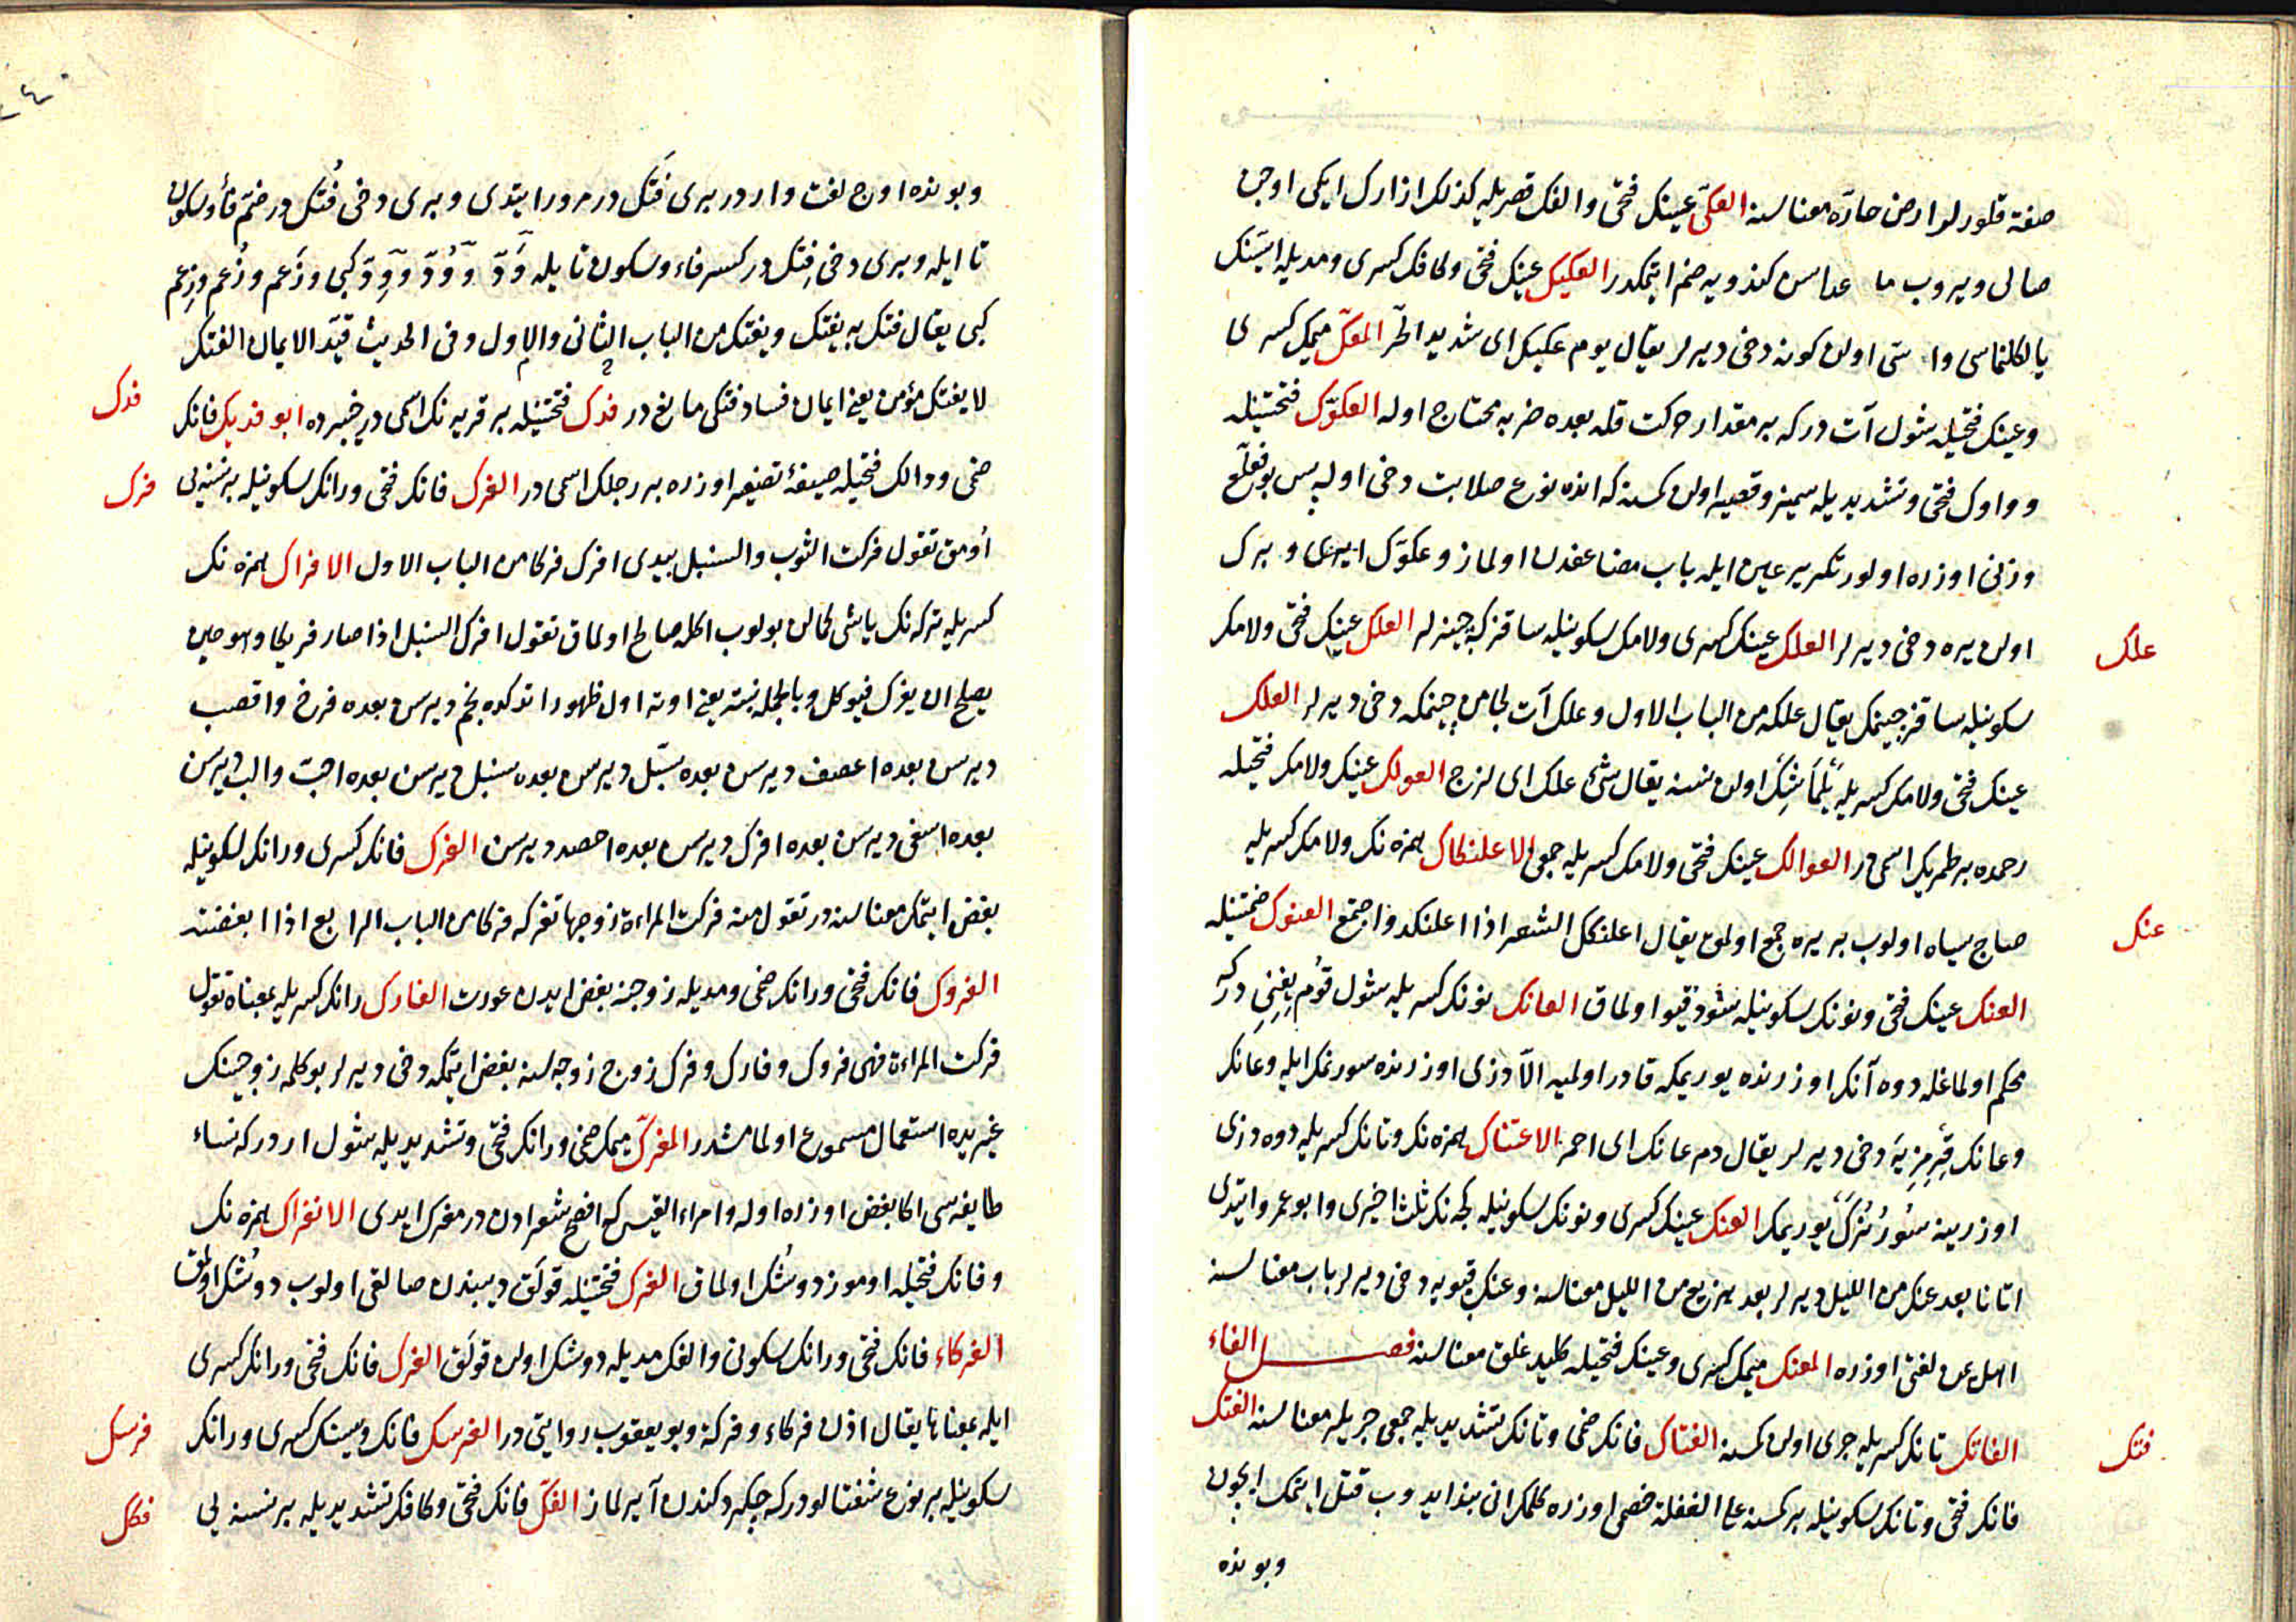 صفة قلور لر ارض حارّه معناسنه العكّى عينك فتحى والفك قصريله كذلك ازارك ايكى اوجن
صالى ويروب ما عداسن كندويه ضم ايتمكدر العكيك عينك فتحى وكافك كسرى ومديله اسّنك
يالكلناسى وا سّى اولن كونه دخى ديرلر يقال يوم عكيك اى شديد الحرّ المعكّ ميمك كسرى
وعينك فتحيله شول آت دركه بر مقدار حركت قله بعده ضربه محتاج اوله العكوّك فتحتينله
وواوك فتحى وتشديديله سميز وقصير اولن كمسنه كه انده نوع صلابت دخى اوله پس بو فعلّع
وزنى اوزره اولور تكرير عين ايله باب مضاعفدن اولماز وعكوّك ايرى و برك
اولن يره دخى ديرلر العلك عينك كسرى ولامك سكونيله ساقز كه چينرلر العلك عينك فتحى ولامك
علك
سكونيله ساقز چينمك يقال علكه من الباب الاول وعلك آت لجامن چينمكه دخى ديرلر العلك
عينك فتحى ولامك كسريله يلماشك اولن نسنه يقال شئ علك اى لزج العولك عينك ولامك فتحيله
رحمده بر طمرك اسمى در العوالك عينك فتحى ولامك كسريله جمعى الاعلنكاك همزه نك ولامك كسريله
صاج سياه اولوب بر يره جمع اولمق يقال اعلنكك الشعر اذا اعلنكد واجتمع العنوك ضمتينله
عنك
العنك عينك فتحى ونونك سكونيله شود قيو اولماق العانك نونك كسريله شول قوم يغنى دركه
محكم اولماغله دوه آنك اوزرنده يوريمكه قادر اولميه الّا دزى اوزرنده سورنمك ايله وعانك
وعانك قرمزيه دخى ديرلر يقال دم عانك اى احمر الاعتناك همزه نك وتانك كسريله دوه دزى
اوزرينه سورنرك يوريمك العنك عينك كسرى ونونك سكونيله كجه نك ثلث اخيرى وابو عمرو ايتدى
اتانا بعد عنك من الليل ديرلر بعد هزيع من الليل معناسنه وعنك قپويه دخى ديرلر باب معناسنه
اهل يمن لغتى اوزره المعنك ميمك كسرى وعينك فتحيله كليد غلق معناسنه فصل الفاء
الفاتك تانك كسريله جرى اولن كمسنه الفتاك فانك ضمى وتانك تشديديله جمعى جريلر معناسنه الفتك
فتك
فانك فتحى وتانك سكونيله بر كمسنه على الغفلة خصمى اوزره كلمك انى بند ايدوب قتل ايتمك ايچون
وبونده
وبونده اوج لغت واردر برى فَتك در مرور ايتدى وبرى دخى فُتك در ضمّ فاء وسكون
تا ايله وبرى دخى فِتك در كسر فاء وسكون تا يله وَدّ و وُدّ و وِدّ كبى وزَعم وزُعم وزِعم
كبى يقال فتك به يفتك ويفتك من الباب الثانى والاول وفى الحديث قيّد الايمان الفتك
لا يفتك مؤمن يعنى ايمان فساد فتكى مانع در فدك فتحتينله بر قريه نك اسمى در خيبرده ابو فديك فانك
فدك
ضمى ودالك فتحيله صيغۀ تصغير اوزره بر رجلك اسمى در الفرك فانك فتحى ورانك سكونيله بر نسنه يى
فرك
اومق تقول فركت الثوب والسنبل بيدى افرك فركا من الباب الاول الافراك همزه نك
كسريله تركه نك ياشى كمالن بولوب اكله صالح اولماق تقول افرك السنبل اذا صار فريكا وهو حين
يصلح ان يفرك فيوكل وبالجمله نبته يعنى اوته اول ظهور اتدكده نجم ديرسن بعده فرخ واقصب
ديرسن بعده اعصف ديرسن بعده سبّل ديرسن بعده سنبل ديرسن بعده احبّ والبّ ديرسن
بعده اسفى ديرسن بعده افرك ديرسن بعده احصد ديرسن الفرك فانك كسرى ورانك سكونيله
بغض ايتمك معناسنه در تقول منه فركت المراءة زوجها تفركه فركا من الباب الرابع اذا ابغضته
الفروك فانك فتحى ورانك ضمى ومديله زوجنه بغض ايدن عورت الفارك رانك كسريله بمعناه تقول
فركت المراءة فهى فروك وفارك وفرك زوج زوجه سنه بغض ايتمكه دخى ديرلر بو كلمه زوجينك
غيريده استعمال مسموع اولمامشدر المفرّك ميمك ضمى ورانك فتحى وتشديديله شول ار دركه نساء
طايفه سى اكا بغض اوزره اوله وامراء القيس كه افصح شعرادن در مفرك ايدى الانفراك همزه نك
وفانك فتحيله اوموز دوشك اولماق الفرك فتحتينله قولق ديبندن صالقى اولوب دوشك اولمق
الفركاء فانك فتحى ورانك سكونى والفك مديله دوشك اولن قولق الفرك فانك فتحى ورانك كسرى
ايله بمعناها يقال اذن فركاء وفركة وبو يعقوب روايتى در الفرسك فانك وسينك كسرى ورانك
فرسك
سكونيله بر نوع شفتالو دركه چكردكندن آيرلماز الفكّ فانك فتحى وكافك تشديديله بر نسنه يى
فكك